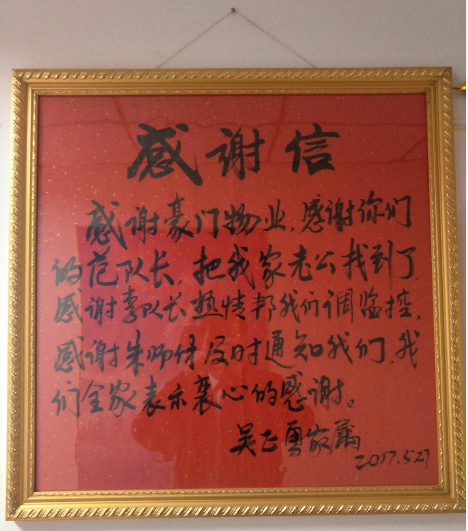 感谢信
感谢豪门物业.感谢你们
的范队长.把我家老公找到了.
感谢李队长热情帮我们调监控.
感谢朱师付及时通知我们.我
们全家表示衷心的感谢。
吴正勇家属
2017.5.27